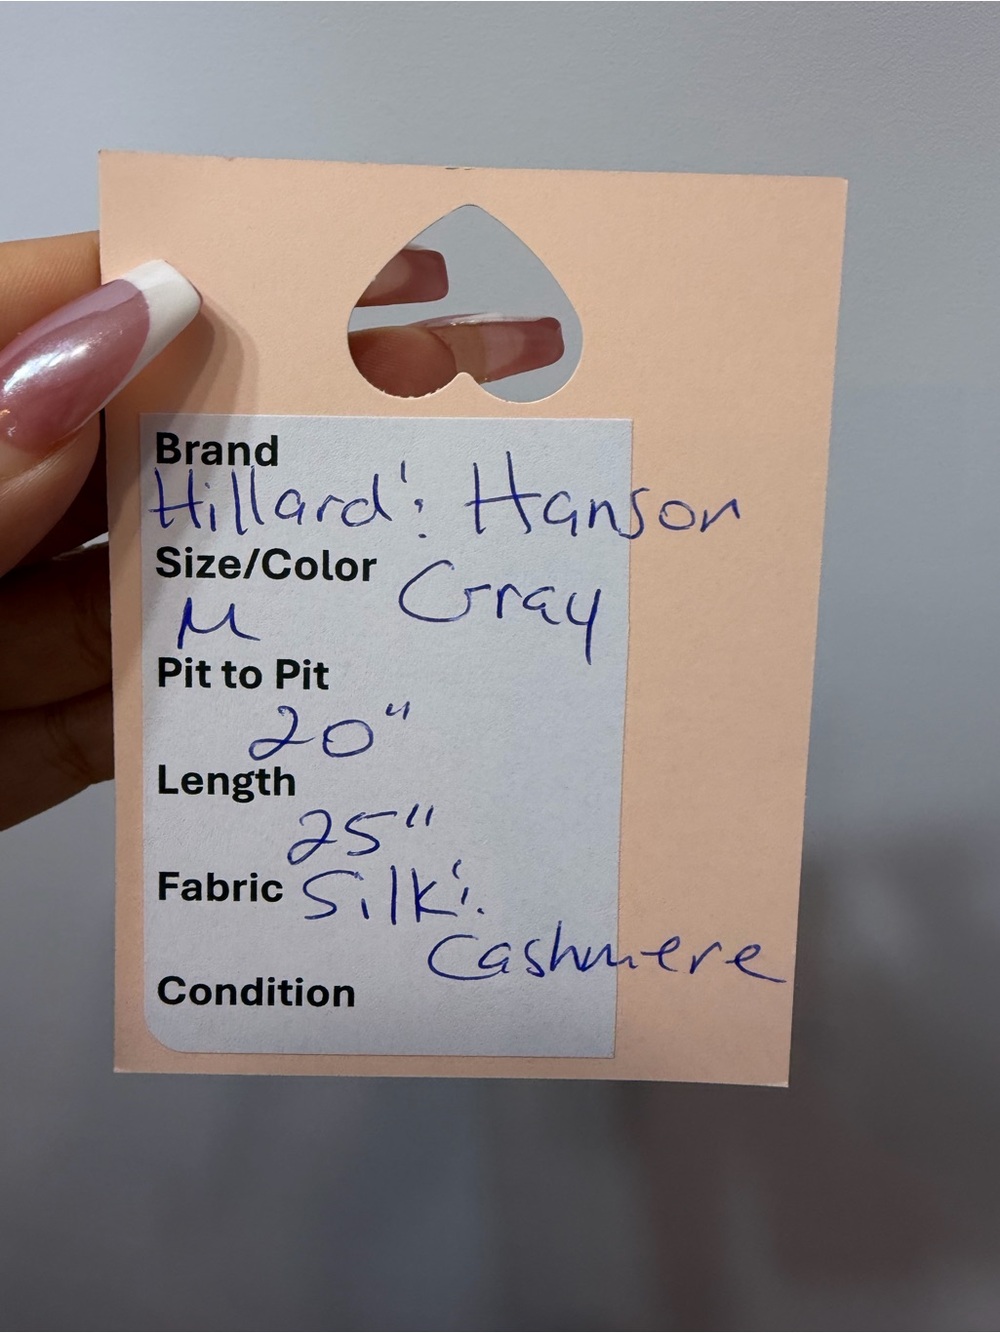 Brand
Hillard & Hanson
Size/Color
M Gray
Pit to Pit
20"
Length
25"
Fabric Silk &
Cashmere
Condition